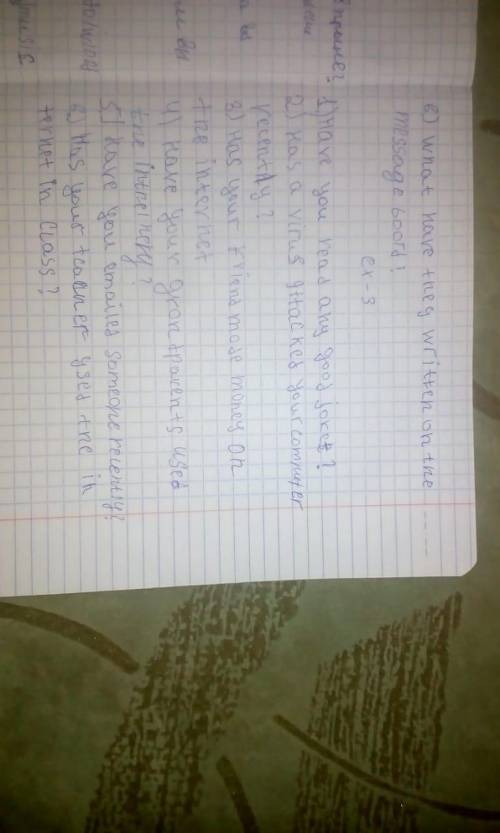 6) what have they written on the
message boord?
ex-3
1) Have you read any good jokes?
2) Has a virus attacked your computer
recently?
3) Has your friend mode money on
the internet
4) Have your grandparents used
the
5) Have you emailed someone recently?
6) Has your teacher used the in
ternet in class?